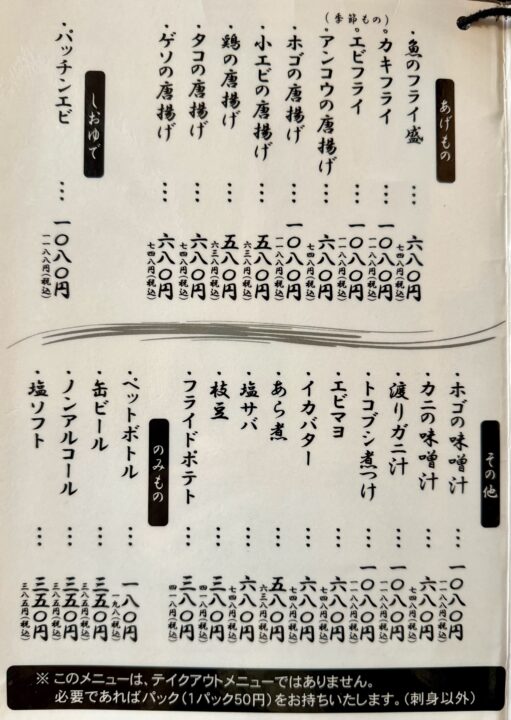 あげもの
・魚のフライ盛 … 六八〇円
七四八円(税込)
(季節もの)
。カキフライ … 一〇八〇円
一一八八円(税込)
。エビフライ … 一〇八〇円
一一八八円(税込)
・アンコウの唐揚げ … 六八〇円
七四八円(税込)
・ホゴの唐揚げ … 一〇八〇円
一一八八円(税込)
・小エビの唐揚げ … 五八〇円
六三八円(税込)
・鶏の唐揚げ … 五八〇円
六三八円(税込)
・タコの唐揚げ … 六八〇円
七四八円(税込)
・ゲソの唐揚げ … 六八〇円
七四八円(税込)
しおゆで
・パッチンエビ … 一〇八〇円
一一八八円(税込)
その他
・ホゴの味噌汁 … 一〇八〇円
一一八八円(税込)
・カニの味噌汁 … 六八〇円
七四八円(税込)
・渡りガニ汁 … 一〇八〇円
一一八八円(税込)
・トコブシ煮つけ … 一〇八〇円
一一八八円(税込)
・エビマヨ … 六八〇円
七四八円(税込)
・イカバター … 六八〇円
七四八円(税込)
・あら煮 … 五八〇円
六三八円(税込)
・塩サバ … 六八〇円
七四八円(税込)
・枝豆 … 三八〇円
四一八円(税込)
・フライドポテト … 三八〇円
四一八円(税込)
のみもの
・ペットボトル … 一八〇円
一九八円(税込)
・缶ビール … 三五〇円
三八五円(税込)
・ノンアルコール … 三五〇円
三八五円(税込)
・塩ソフト … 三五〇円
三八五円(税込)
※ このメニューは、テイクアウトメニューではありません。
必要であればパック(1パック50円)をお持ちいたします。(刺身以外)